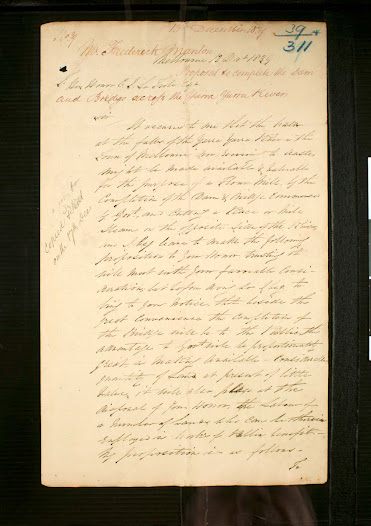 39
311
Mr Frederick Manton
Melbourne 13 Decr 1839
Proposal to complete the Dam
and Bridge across the Yarra Yarra River
Sir
It occurs to me that the
at the falls of the Yarra Yarra River in the
Town of Melbourne now running to waste
might be made available &
for the purpose of a Flour Mill, by the
Completion of the Dam & Bridge Commenced
by Govt. and Cutting a Race or Mile
Stream on the opposite side of the River,
and I beg leave to make the following
proposition to Your Honor trusting it
will meet with Your favorable consi-
deration, but before doing so I beg to
bring to Your notice that beside the
great convenience the Completion of
the Bridge will be to the Public, the
advantage to Govt. will be proportionately
great in making available a considerable
quantity of Land at present of little
value, it will also place at the
disposal of Your Honor, the Labour of
a number of hands who can be
employed in works of Public benefit
My proposition is as follows.